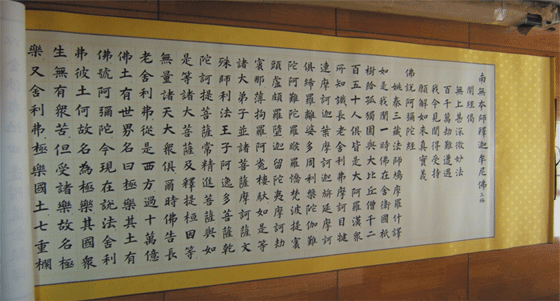 南無本師釋迦牟尼佛 三稱
開經偈
無上甚深微妙法
百千萬劫難遭遇
我今見聞得受持
願解如來真實義
佛說阿彌陀經
姚秦三藏法師鳩摩羅什譯
如是我聞一時佛在舍衛國祇
樹給孤獨園與大比丘僧千二
百五十人俱皆是大阿羅漢眾
所知識長老舍利弗摩訶目犍
連摩訶迦葉摩訶迦旃延摩訶
俱絺羅離婆多周利槃陀伽難
陀阿難陀羅睺羅憍梵波提賓
頭盧頗羅墮迦留陀夷摩訶劫
賓那薄拘羅阿㝹樓馱如是等
諸大弟子並諸菩薩摩訶薩文
殊師利法王子阿逸多菩薩乾
陀訶提菩薩常精進菩薩與如
是等諸大菩薩及釋提桓因等
無量諸天大眾俱爾時佛告長
老舍利弗從是西方過十萬億
佛土有世界名曰極樂其土有
佛號阿彌陀今現在說法舍利
弗彼土何故名為極樂其國眾
生無有眾苦但受諸樂故名極
樂又舍利弗極樂國土七重欄